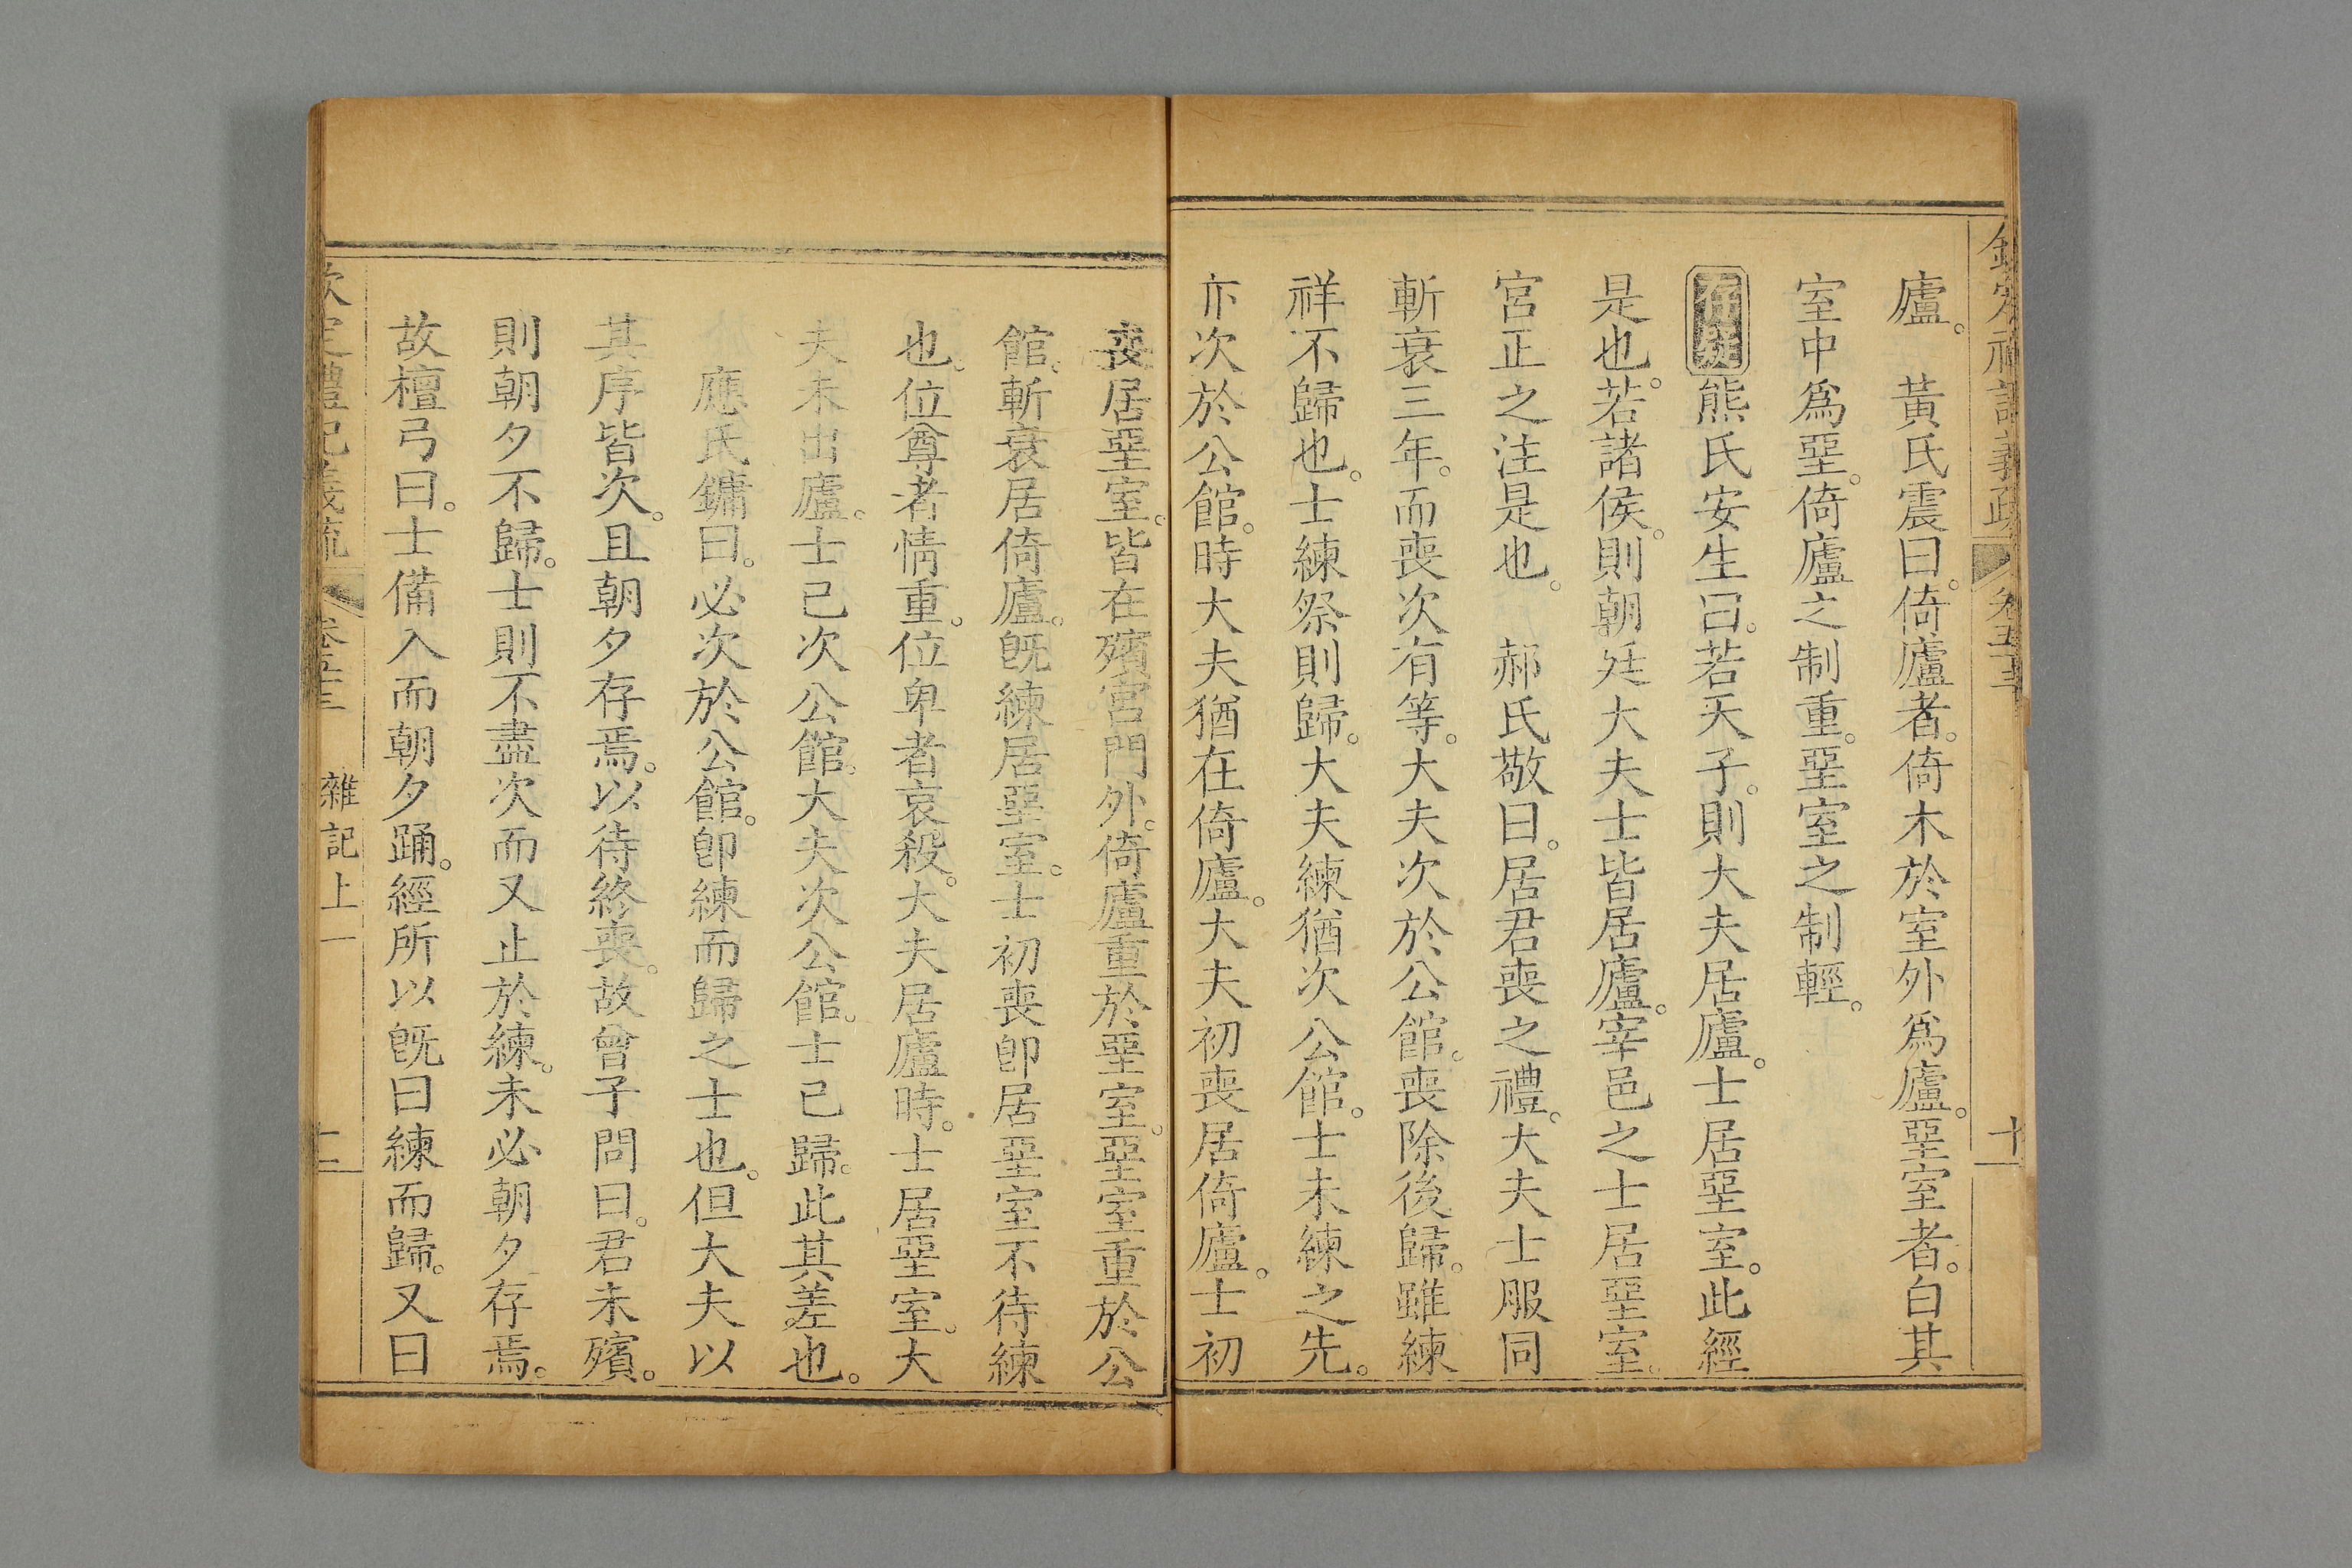 廬。　黃氏震曰。倚廬者。倚木於室外爲廬。堊室者。白其
室中爲堊。倚廬之制重。堊室之制輕。
存疑熊氏安生曰。若天子。則大夫居廬。士居堊室。此經
是也。若諸侯。則朝廷大夫士皆居廬。宰邑之士居堊室。
宮正之注是也。　郝氏敬曰。居君喪之禮。大夫士服同
斬衰三年。而喪次有等。大夫次於公館。喪除後歸。雖練
祥不歸也。士練祭則歸。大夫練猶次公館。士未練之先。
亦次於公館。時大夫猶在倚廬。大夫初喪居倚廬。士初
喪居堊室。皆在殯宮門外。倚廬重於堊室。堊室重於公
館。斬衰居倚廬。旣練居堊室。士初喪卽居堊室不待練
也。位尊者情重。位卑者哀殺。大夫居廬時。士居堊室。大
夫未出廬。士已次公館。大夫次公館。士已歸。此其差也。
應氏鏞曰。必次於公館。卽練而歸之士也。但大夫以
其序皆次。且朝夕存焉。以待終喪。故曾子問曰。君未殯。
則朝夕不歸。士則不盡次而又止於練。未必朝夕存焉。
故檀弓曰。士備入而朝夕踊。經所以旣曰練而歸。又曰
欽定禮記義疏　雜記上一